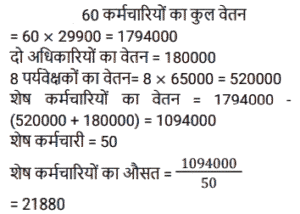 60 कर्मचारियों का कुल वेतन
= 60 × 29900 = 1794000
दो अधिकारियों का वेतन = 180000
8 पर्यवेक्षकों का वेतन= 8 × 65000 = 520000
शेष कर्मचारियों का वेतन = 1794000 -
(520000 + 180000) = 1094000
शेष कर्मचारी = 50
शेष कर्मचारियों का औसत = 1094000/50
= 21880